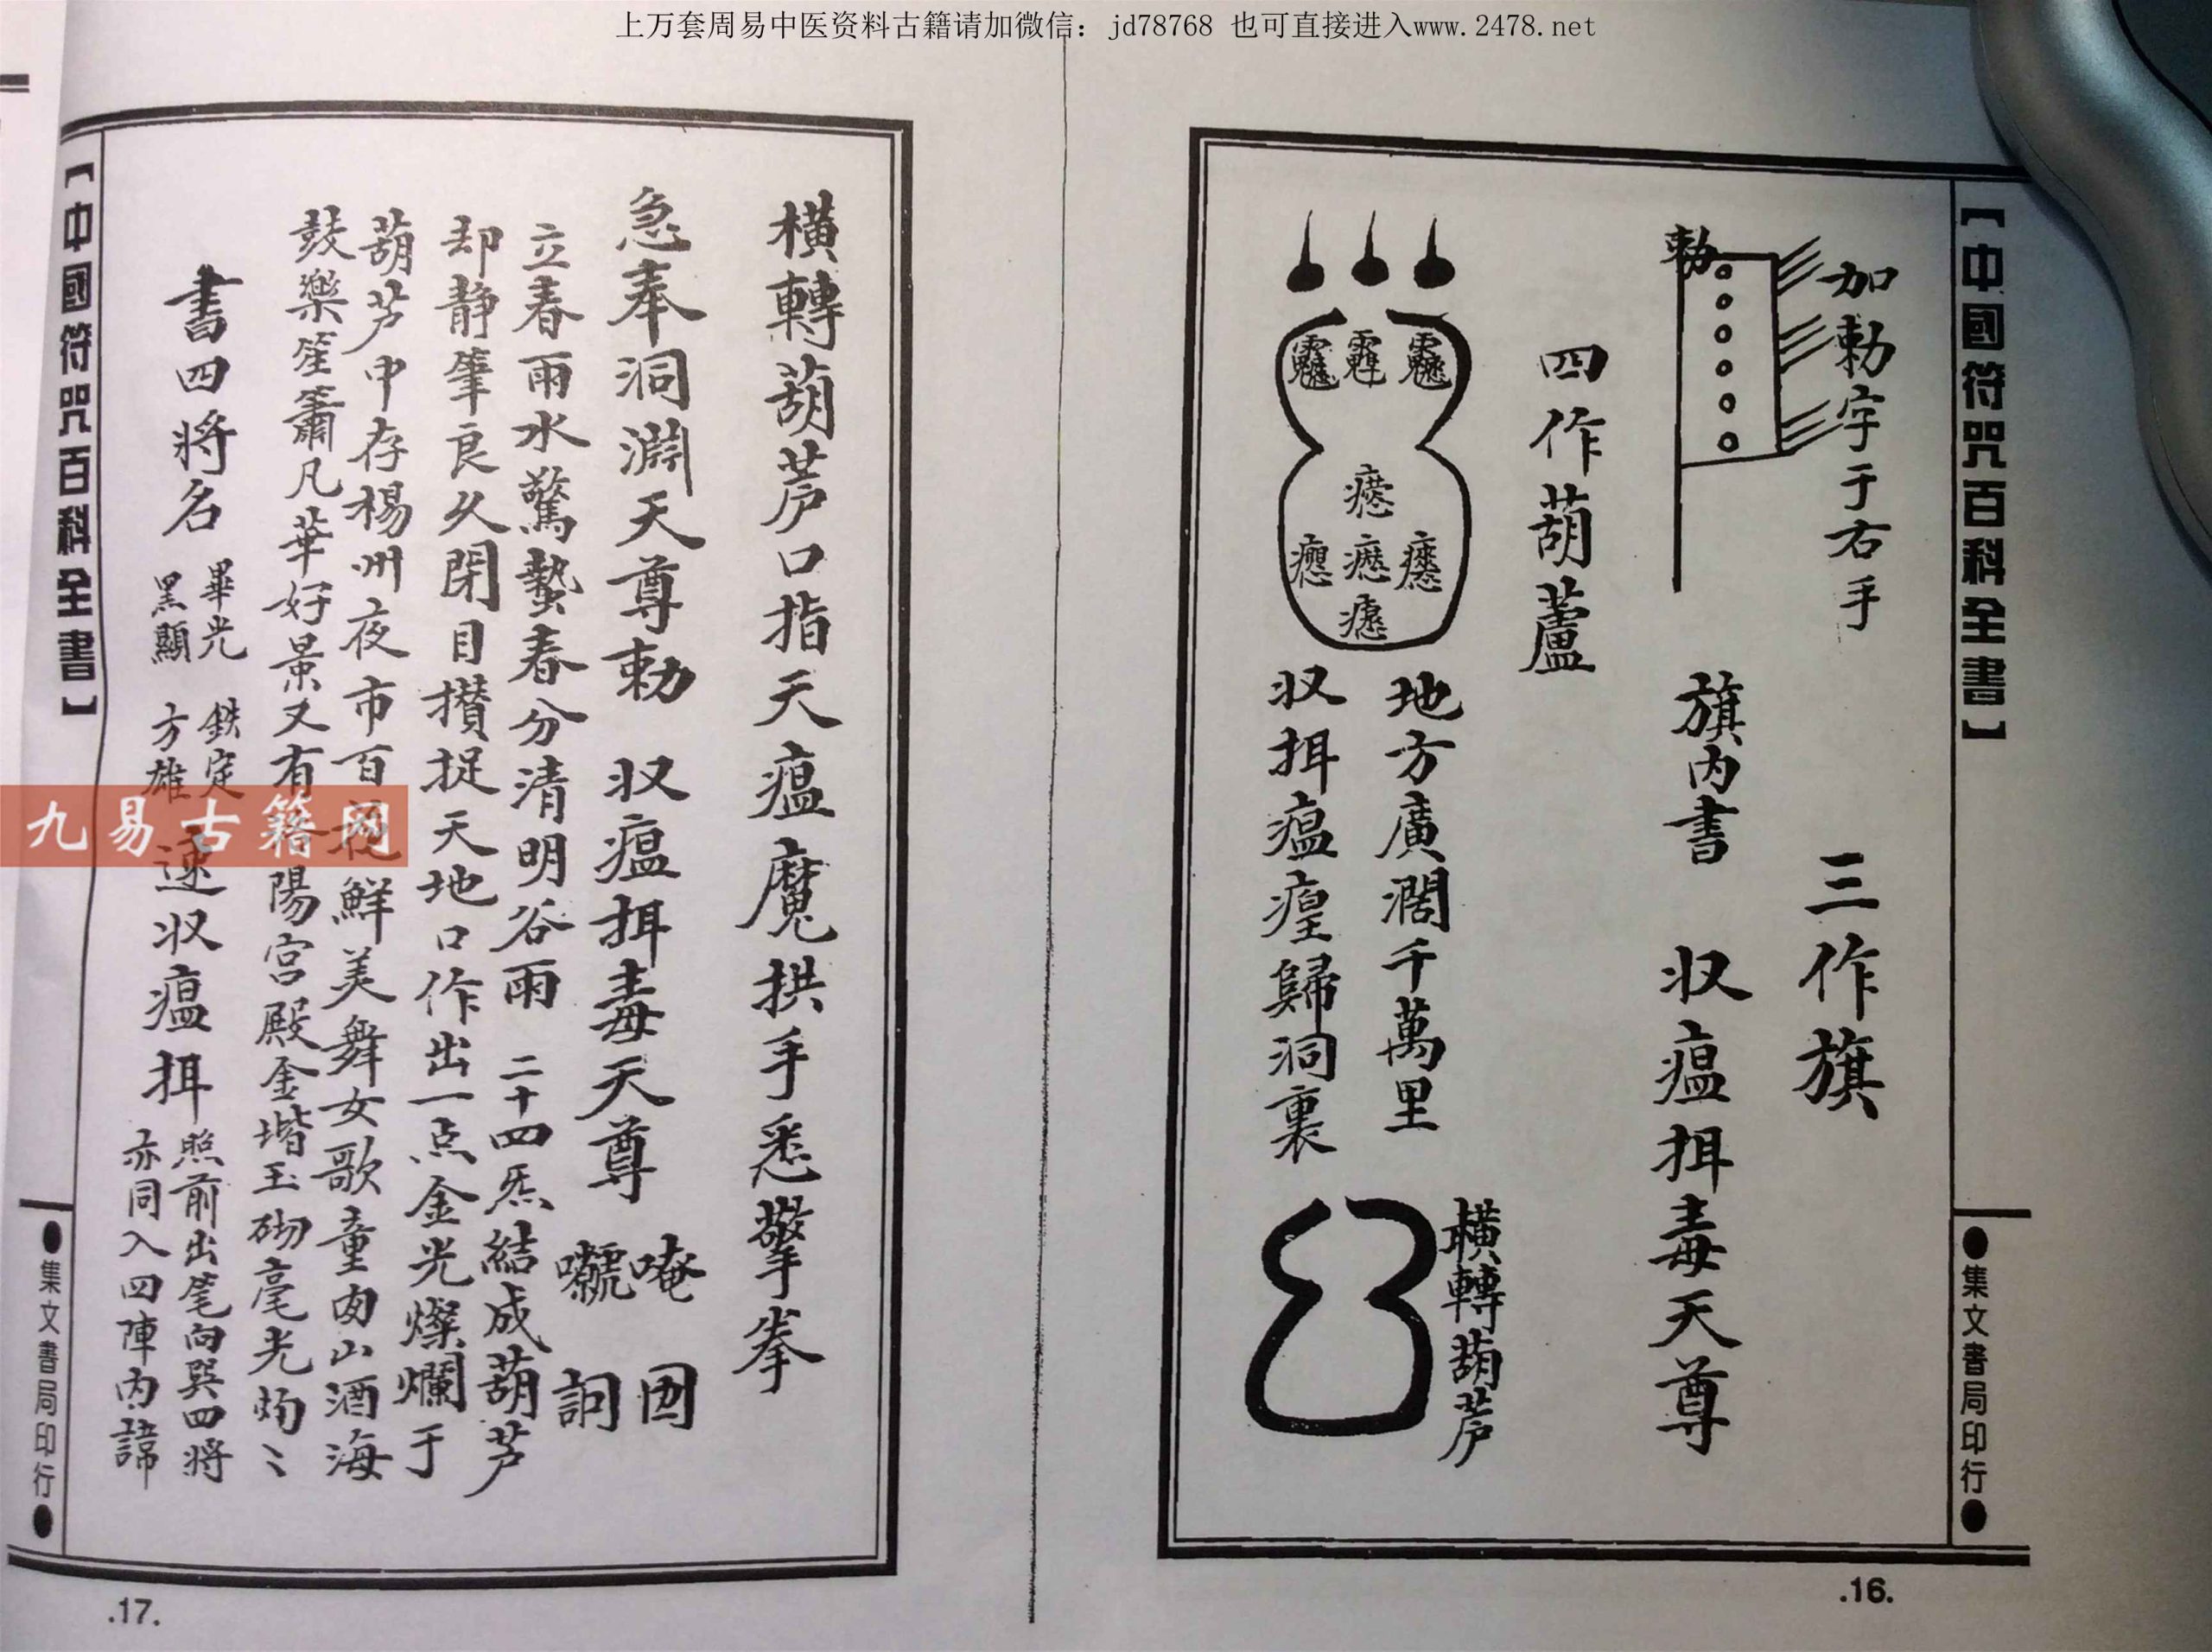 上万套周易中医资料古籍请加微信：jd78768 也可直接进入www.2478.net
【中國符咒百科全書】
●集文書局印行●
加勅字于右手
三作旗
勅
旗内書
収瘟摄毒天尊
四作葫蘆
地方廣濶千萬里
収摄瘟㾮歸洞裏
横轉葫芦
.16.
横轉葫芦口指天瘟魔拱手悉擎拳
急奉洞淵天尊勅
収瘟摄毒天尊
唵
囦
嚱
訶
立春雨水驚蟄春分清明谷雨
二十四炁結成葫芦
却静筆良久閉目攅捉天地口作出一点金光燦爛于
葫芦中存楊州夜市百
鮮美舞女歌童肉山酒海
鼓樂笙簫凡華好景又有
陽宫殿金堦玉砌亳光灼〻
書四将名
畢光
黑顯
鉄定
方雄
速収瘟摄
照前出笔向巽四将
亦同入四陣内諱
【中國符咒百科全書】
●集文書局印行●
.17.
九易古籍网